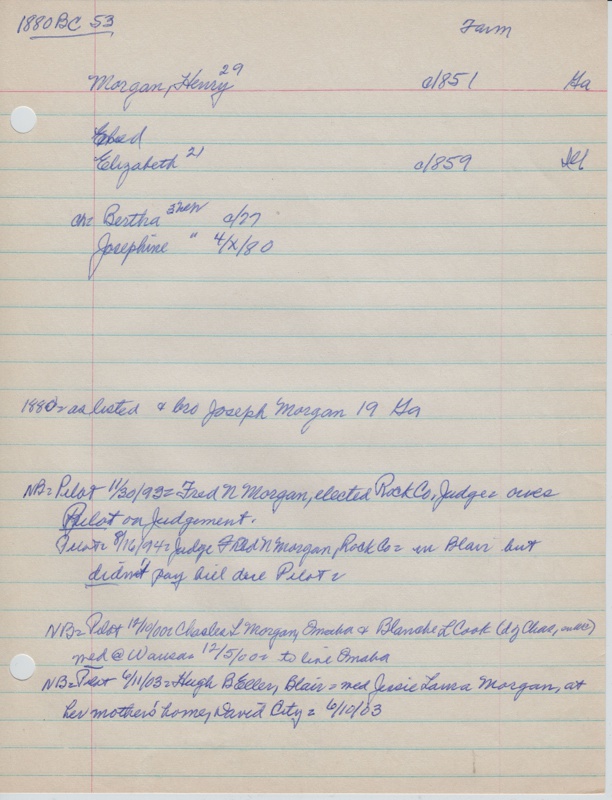 1880 BC 53 Farm
Morgan, Henry 29 c/1851 Ga
Elizabeth 21 c/1859 Ill
ch= Bertha 3 Neb c/77
Josephine " 4/X/80
1880= as listed & bro Joseph Morgan 19 Ga
NB= Pilot 11/30/93= Fred N Morgan, elected Rock Co, Judge= owes
Pilot on Judgement.
Pilot= 8/16/94= Judge Fred N Morgan, Rock Co= in Blair but
didn't pay bill due Pilot=
NB= Pilot 12/19/00= Charles L Morgan, Omaha & Blanche L Cook (d of Chas,
med @ Wausa= 12/5/00= to live Omaha
NB= 6/11/03= Hugh B Eller, Blair= med Jessie Laura Morgan, at
her mother's home, David City= 6/10/03